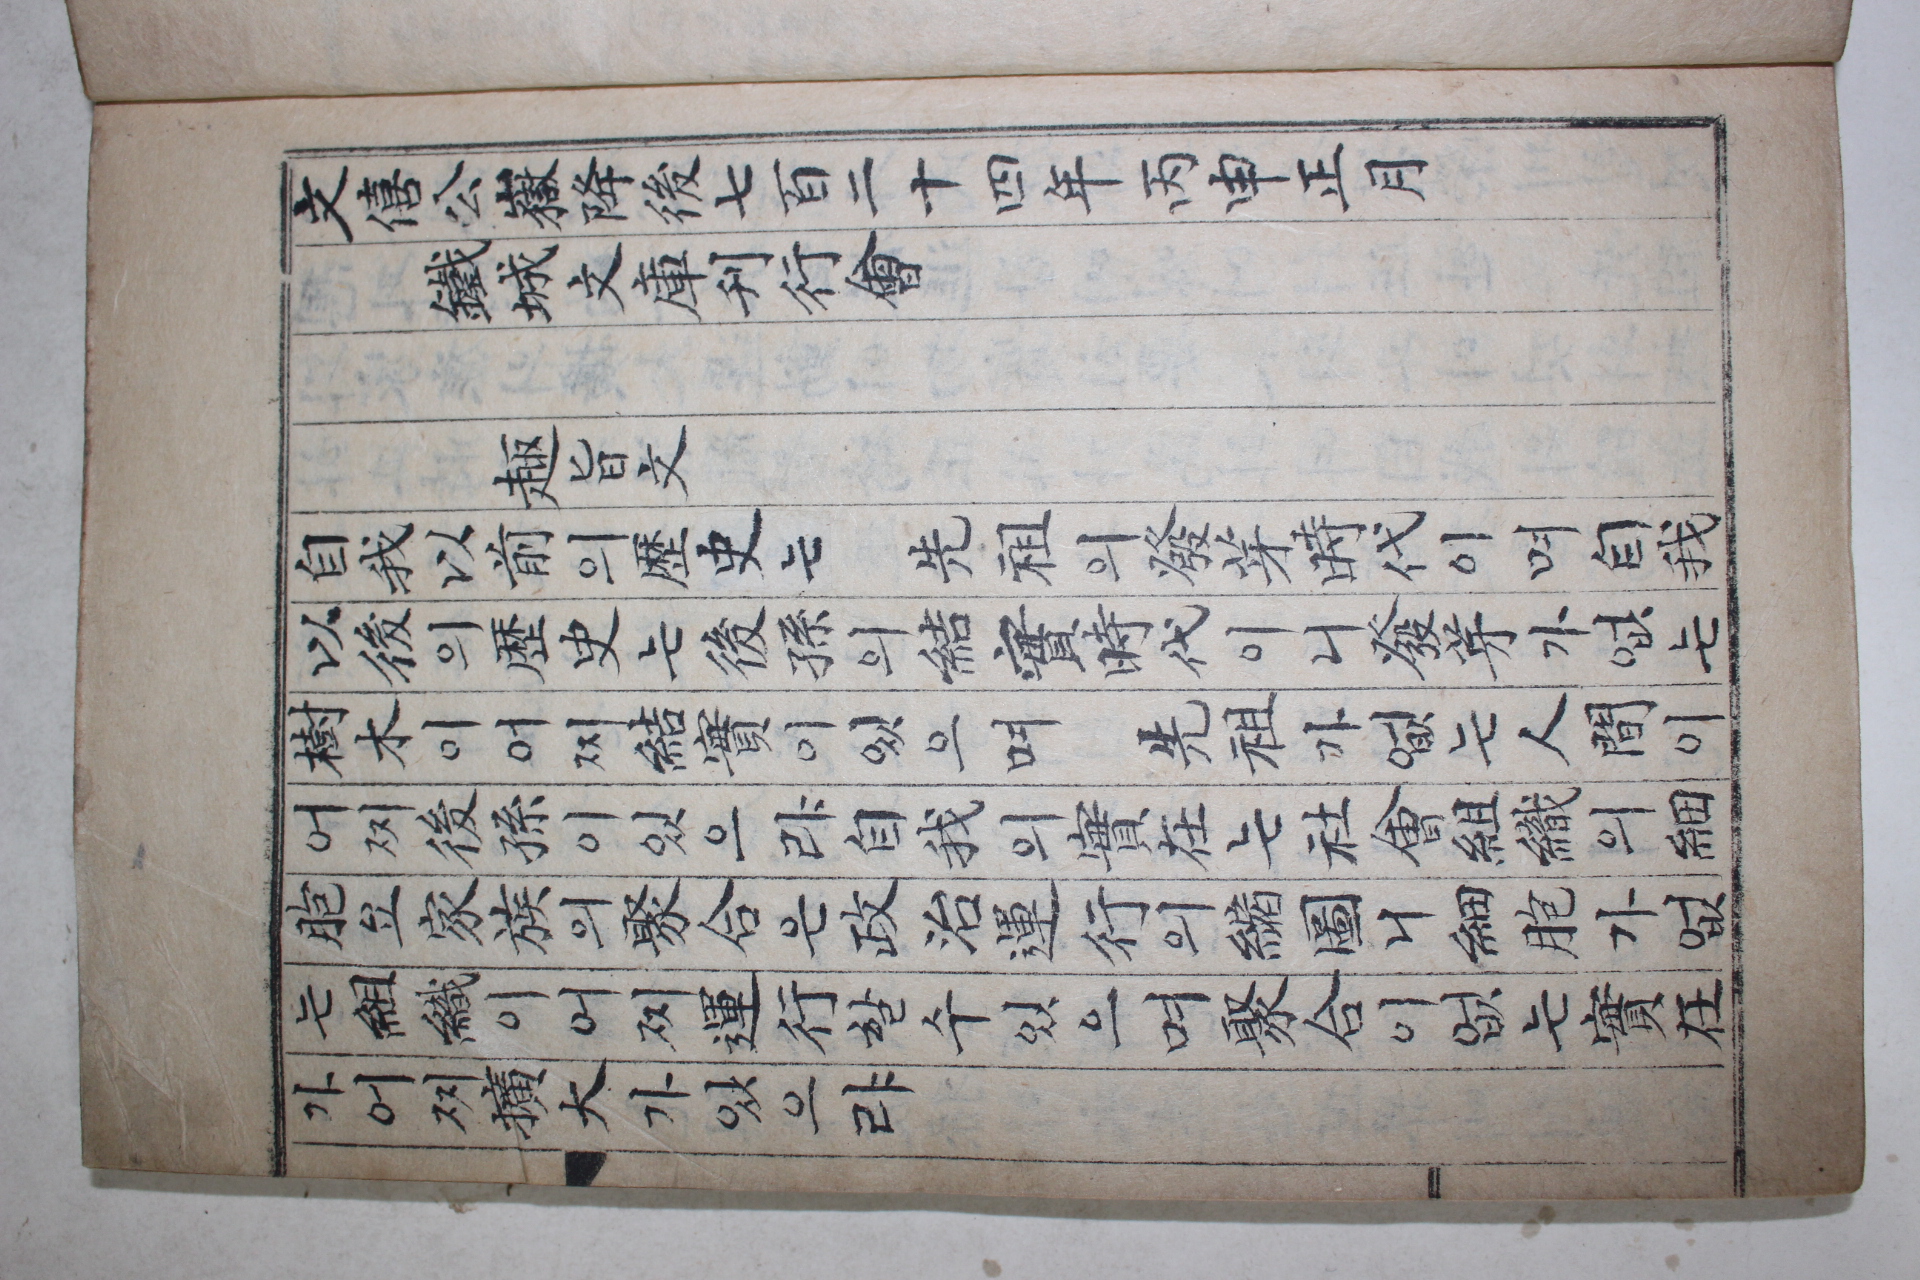 文僖公嶽降後七百二十四年丙申正月
鐵城文庫刊行會
趣旨文
自我以前의歴史는 先祖의發芽時代이며自我
以後의歴史는後孫의結實時代이니發芽가없는
樹木이어찌結實이있으며 先祖가없는人間이
어찌後孫이있으랴自我의實在는社會組織의細
胞요家族의聚合은政治運行의縮圖니細胞가없
는組織이어찌運行할수있으며聚合이없는實在
가어찌擴大가있으랴